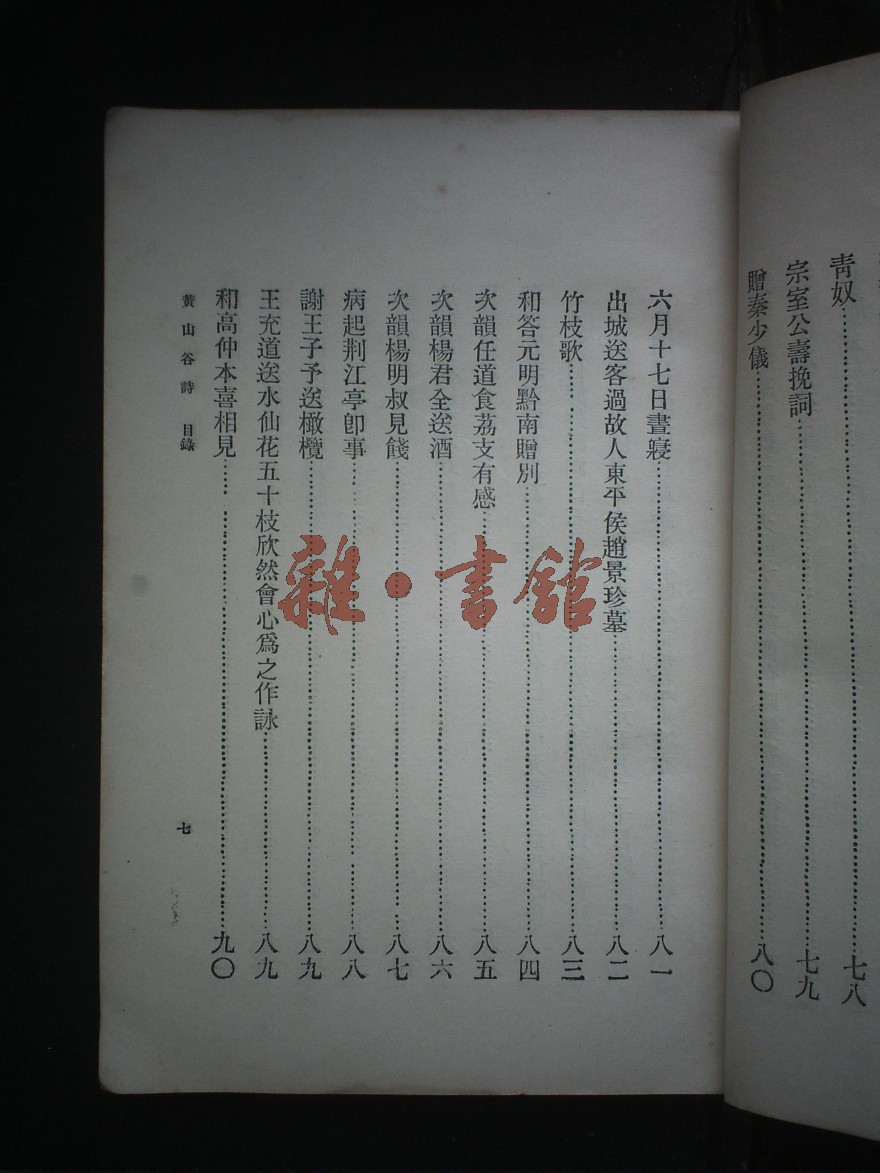 青奴……七八
宗室公壽挽詞……七九
贈秦少儀……八〇
六月十七日晝寢……八一
出城送客過故人東平侯趙景珍墓……八二
竹枝歌……八三
和答元明黔南贈別……八四
次韻任道食荔支有感……八五
次韻楊君全送酒……八六
次韻楊明叔見餞……八七
病起荆江亭卽事……八八
謝王子予送橄欖……八九
王充道送水仙花五十枝欣然會心爲之作詠……八九
和高仲本喜相見……九〇
黃山谷詩 目錄
七
雜·書館